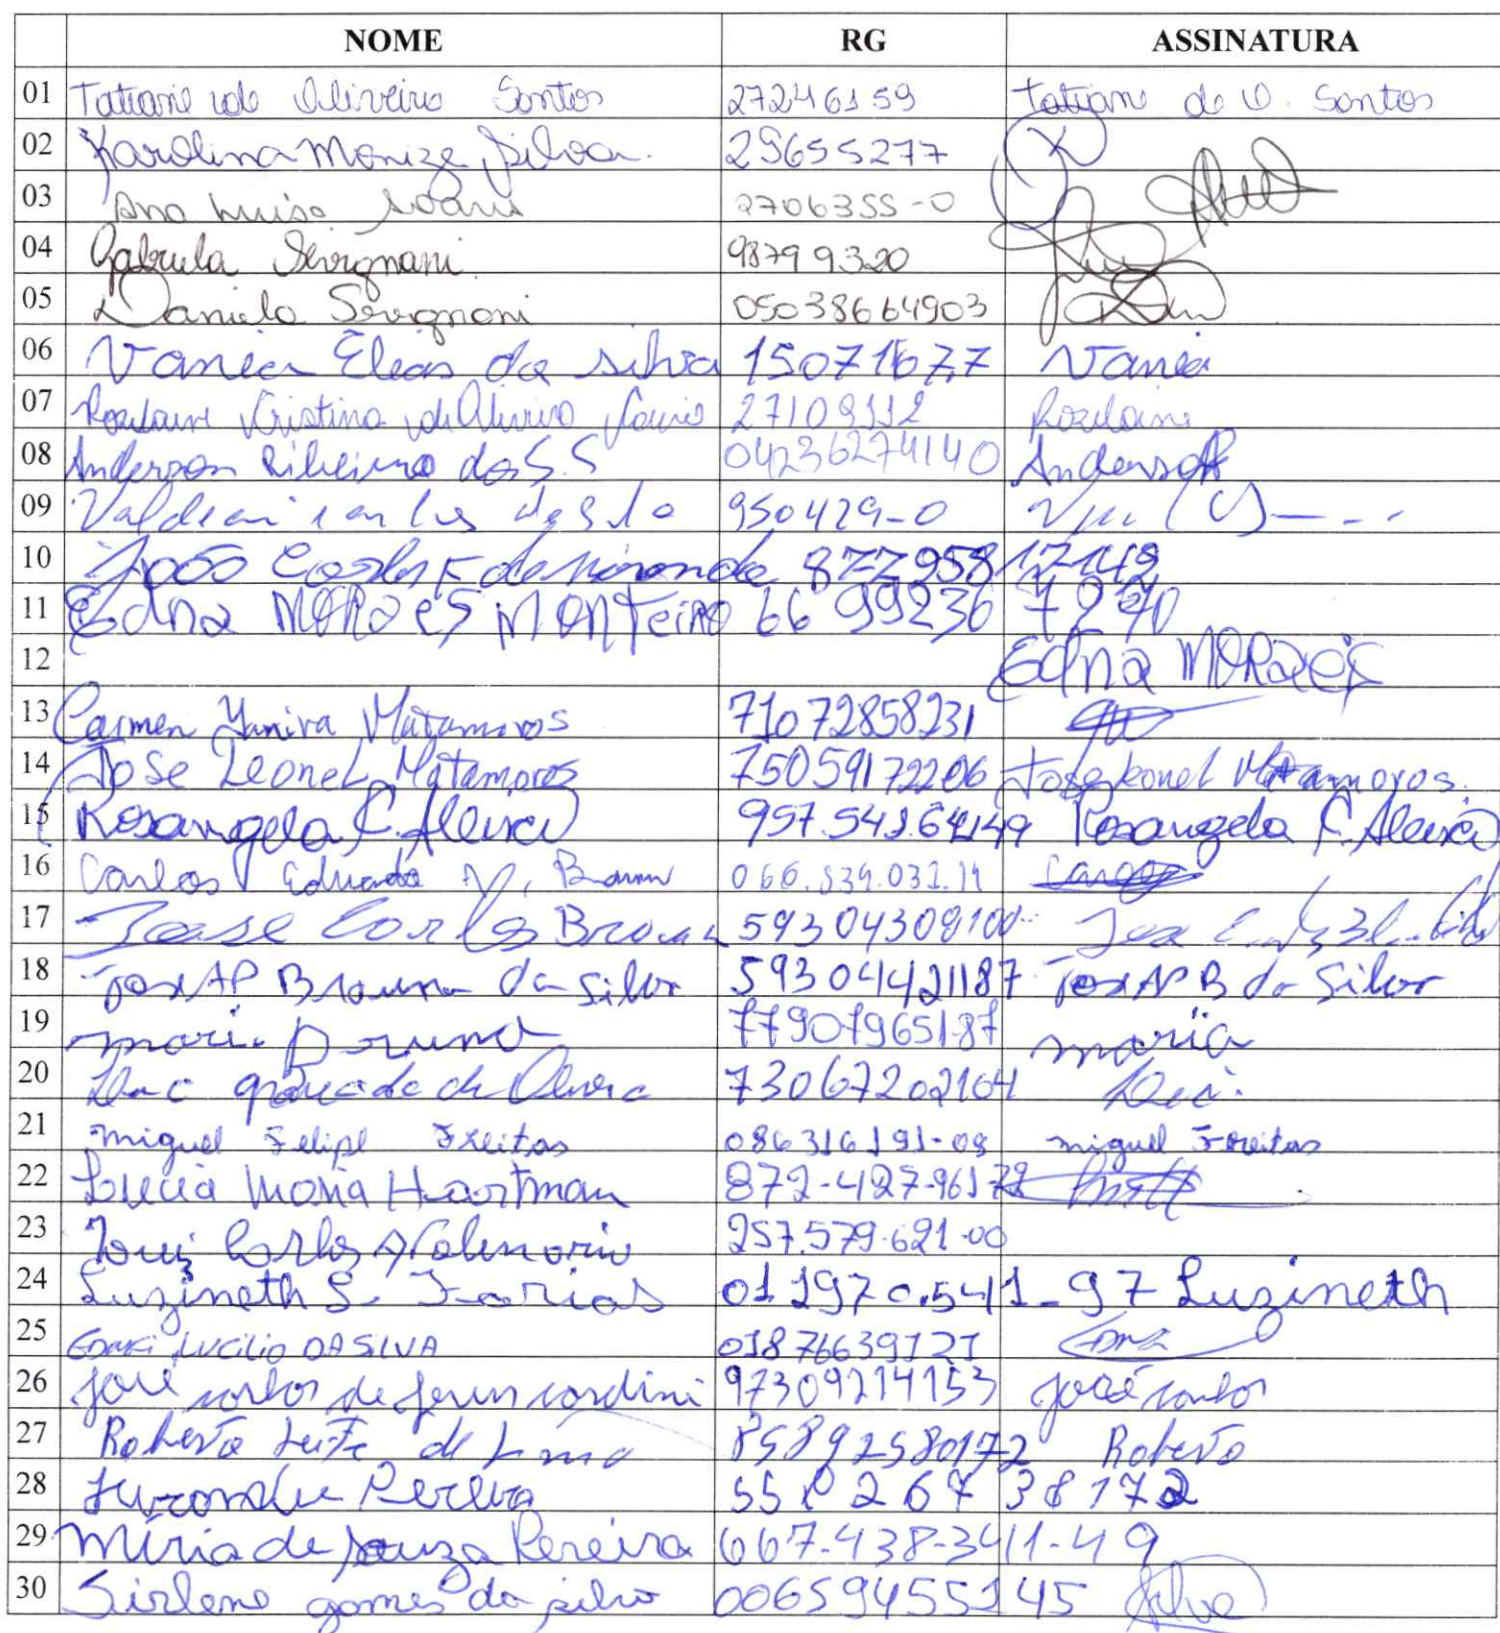 NOME RG ASSINATURA
01 Tatiane de Oliveira Santos 27246159 Tatiane de O. Santos
02 Karolina Monize Silva. 29655277
03 Ana Luisa Soares 2706355-0
04 Gabriela Sevignani 98799320
05 Daniela Sevignani 05038664903
06 Vania Elias da Silva 15071677 Vania
07 Rosilaine Cristina de Oliveira 27109112 Rosilaine
08 Anderson Ribeiro dos S.S 04236274140 Anderson
09 950429-0
10 João Carlos F de Miranda 87795817149
11 Edna MORAES MONTeiRO 66 99236 7290
12 Edna MORAES
13 Carmen Yanira Matamoros 71072858231
14 Jose Leonel Matamoros 75059172206 Jose Leonel Matamoros.
15 Rosangela F. Aleixo 957.541.64149 Rosangela F. Aleixo
16 Carlos Eduardo 066.539.031.11 Carlos
17 Jose Carlos Brauna 59304309100
18 Jose AP Brauna da Silva 59304421187 Jose AP B da Silva
19 Maria Brauna 77907965187 maria
20 de Oliveira 73067202104
21 miguel Felipe Freitas 086316191-08 miguel Freitas
22 Lucia Maria Hartman 872-427-961-72
23 Luiz Carlos 257.579.621.00
24 Luzineth S. Farias 011970.541-97 Luzineth
25 LUCILIO DA SILVA 01876639121
26 José carlos de Jesus cardini 97309214153 José carlos
27 Roberto Leite de Lima 85892580172 Roberto
28 Pereira 551 267 38172
29 Miria de Souza Pereira 667-438-341-49
30 Sirlene gomes da silva 00659455145 Silva